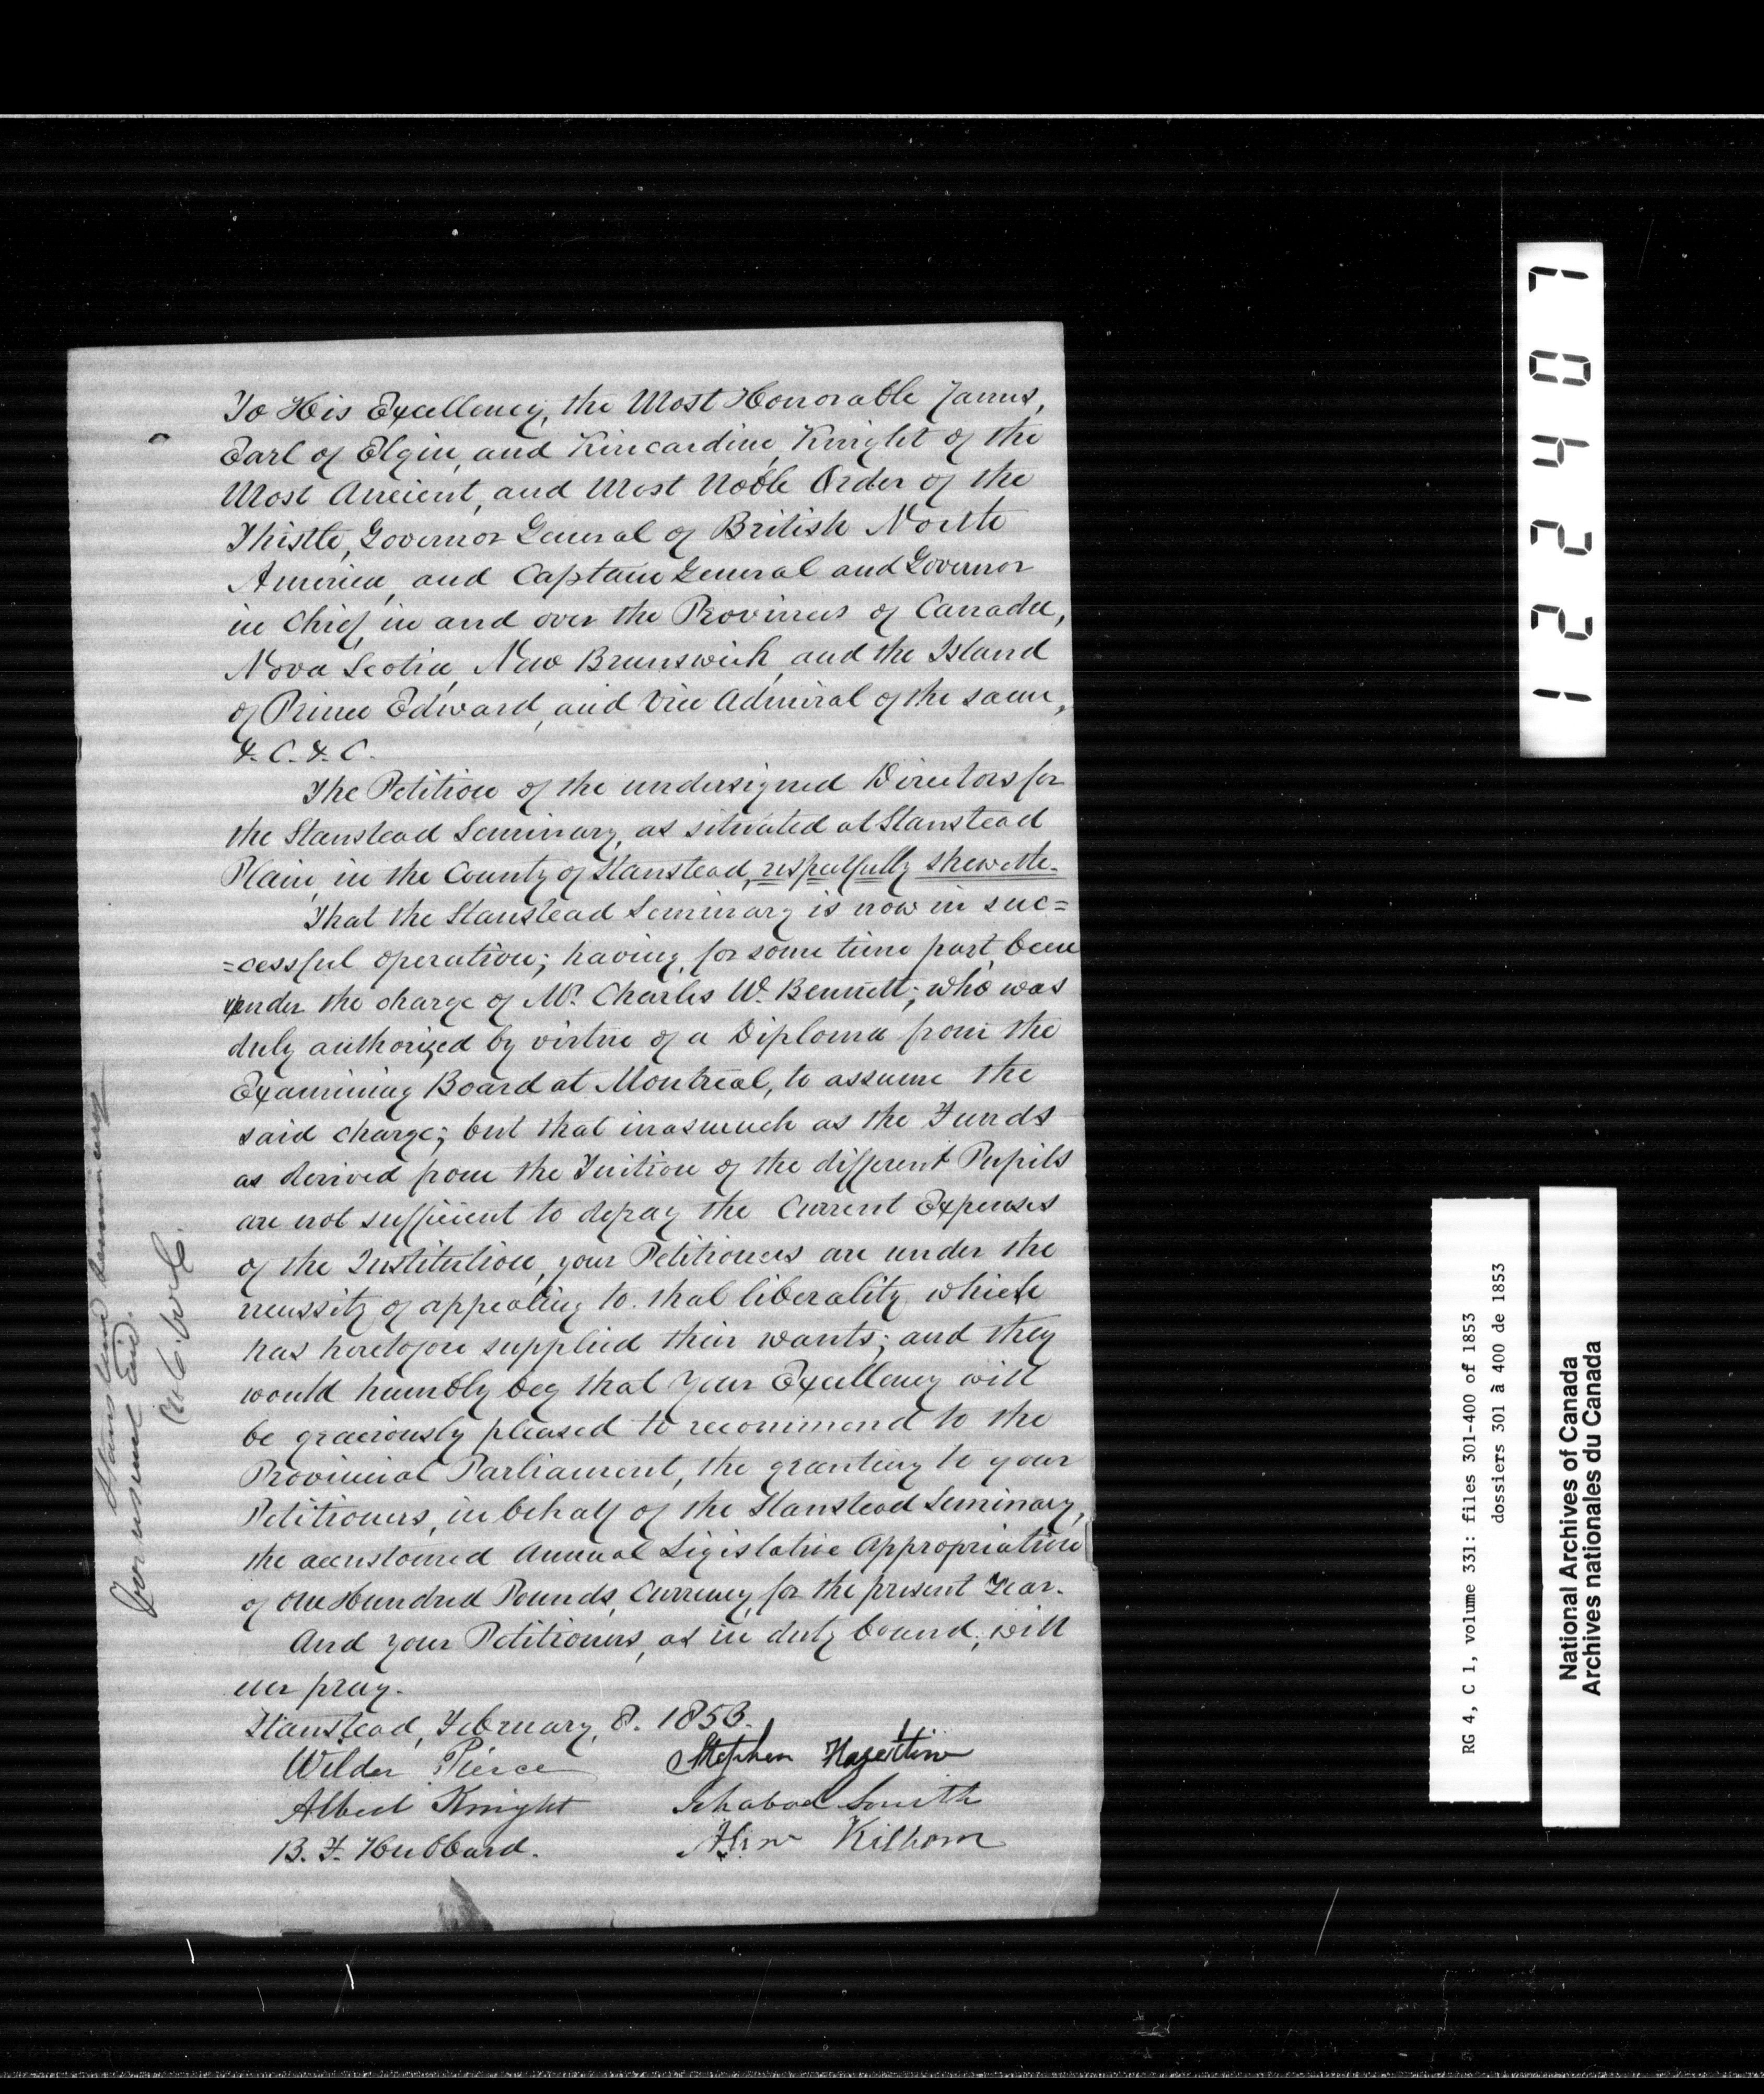 To His Excellency, the Most Honorable James,
Earl of Elgin, and Kincardine, Knight of the
Most Ancient, and Most Noble Order of the
Thistle, Governor General of British North
America, and Captain General and Governor
in Chief, in and over the Provinces of Canada,
Nova Scotia, New Brunswick, and the Island
of Prince Edward, and Vice Admiral of the same,
&. C. &. C.
The Petition of the undersigned Directors for
the Stanstead Seminary, as situated at Stanstead
Plain, in the County of Stanstead, respectfully sheweth.
That the Stanstead Seminary is now in suc=
=cessful operation; having, for some time past, been
under the charge of Mr. Charles W. Bennett; who was
duly authorized by virtue of a Diploma from the
Examining Board at Montreal, to assume the
said charge; but that inasmuch as the Funds
as derived from the Tuition of the different Pupils
are not sufficient to defray the Current Expenses
of the Institution, your Petitioners are under the
necessity of appealing to that liberality which
has heretofore supplied their wants; and they
would humbly beg that Your Excellency will
be graciously pleased to recommend to the
Provincial Parliament, the granting to your
Petitioners, in behalf of the Stanstead Seminary,
the accustomed Annual Legislative Appropriation
of One Hundred Pounds, Currency, for the present Year.
And your Petitioners, as in duty bound, will
ever pray.
Stanstead, February, 8. 1853.
Wilder Pierce
Stephen Hazeltine
Albert Knight
Ichabod Smith
B. F. Hubbard.
Kilborn
Stanstead Seminary
12407
RG 4, C 1, volume 331: files 301-400 of 1853
dossiers 301 à 400 de 1853
National Archives of Canada
Archives nationales du Canada